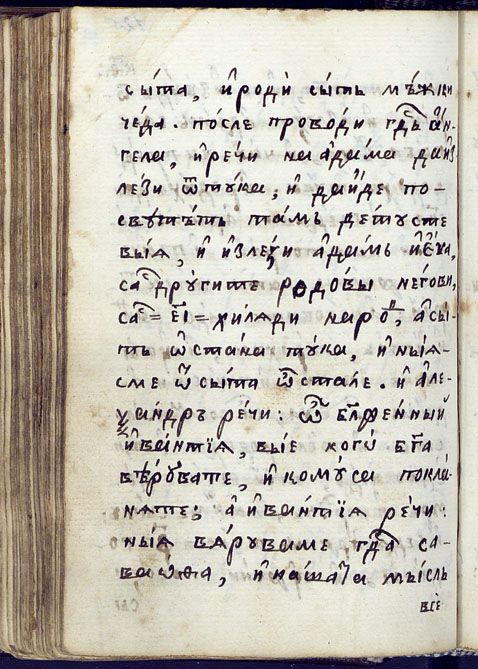 сы́та, и҆ родѝ сы́тъ мꙋ́жки
че́да. по́сле проводи гдⷭ҇ь а҆́н-
гела, и҆ ре́чи на а҆да́ма да и҆з
лѣ́зи ѿ тꙋ́ка, и҆ да и҆́де по-
свѧтетъ та́мъ де́ тꙋ сте
вы́ѧ, и҆ и҆злѣ́зи а҆да́мъ и҆ є҆́ѵа,
са дрꙋ́гите родо́вы не́гови,
са = є҃і = хи́лѧди наро́ⷣ, а҆ сы-
тъ ѡ҆ста́на тꙋ́ка, и҆ ны́ѧ-
сме ѿ сы́та ѡ҆ста́ле. и҆ а҆ле-
ѯандръ ре́чи: ѽ бл҃же́нный
и҆ва́нтїѧ, вы́е кого̀ бг҃а
вѣ́рꙋвате, и҆ комꙋ̀ са поклѧ́-
нѧте; а҆ и҆ва́нтїѧ ре́чи:
ны́ѧ вѧ́рꙋваме гдⷭ҇а са-
ваѡ́ѳа, и҆ на́ша та мы́сль
все